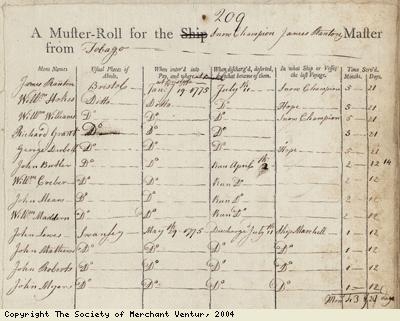 209
A Muster-Roll for the Ship Snow Champion James Stanton Master
from Tobago
Mens Names Usual Places of Abode, When enter'd into Pay, and where at Bristol When discharg'd, deserted, or what became of them. In what Ship or Vessel the last Voyage. Time Serv'd. Months. Days.
James Stanton Bristol Jany 19 1775 July 11 Snow Champion 5 21
Willm Hokes Ditto Ditto Do Hope 5 21
Willm Williams Do Do Do Snow Champion 5 21
Richard Grant Do Do Do 5 21
George Do Do Do Hope 5 21
John Butler Do Do Run April 2 Do 2 12 14
Willm Do Do Run Do Do 2 12
John Means Do Do Run Do Do 2 12
Willm Madden Do Do Run Do Do 2 12
John Jones Swansey May 19 1775 Discharge July 11 Ship Marshall 1 12
John Mathews Do Do Do Do 1 12
John Roberts Do Do Do Do 1 12
John Myers Do Do Do Do 1 12
Mon 43 days
Copyright The Society of Merchant Ventur, 2004